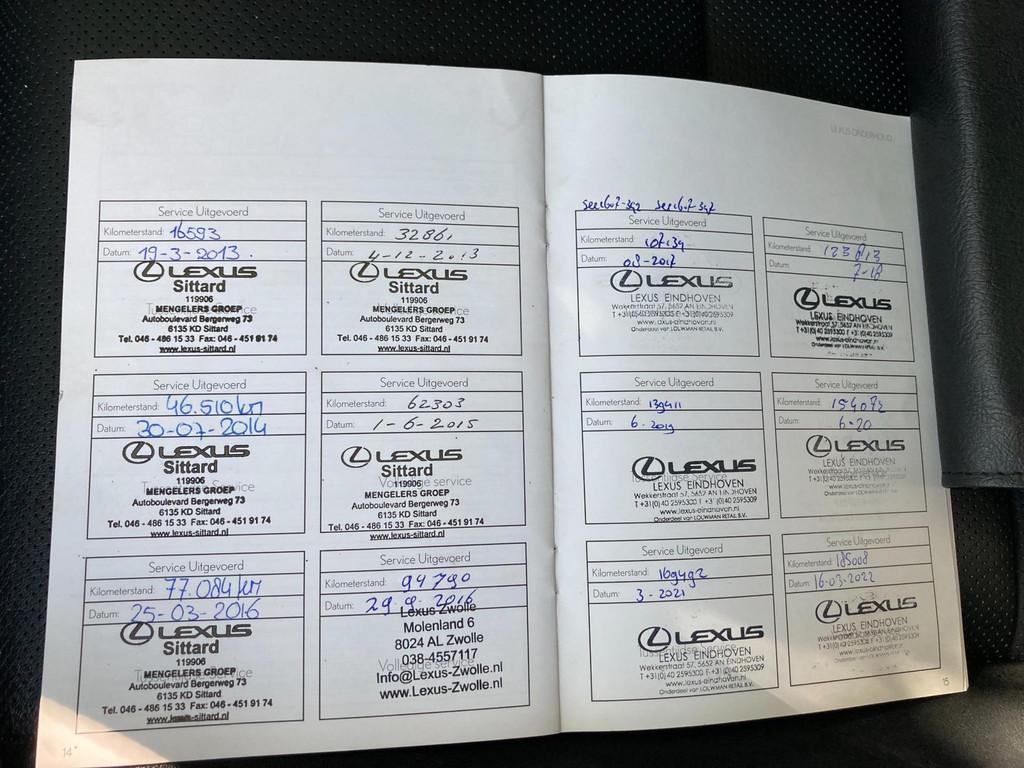 Service Uitgevoerd
Kilometerstand: 16593
Datum: 19-3-2013.
LEXUS
Sittard
119906
MENGELERS GROEP
Autoboulevard Bergerweg 73
6135 KD Sittard
Tel. 046 - 486 15 33 Fax: 046 - 451 91 74
www.lexus-sittard.nl
Service Uitgevoerd
Kilometerstand: 32861
Datum: 4-12-2013
LEXUS
Sittard
119906
MENGELERS GROEP
Autoboulevard Bergerweg 73
6135 KD Sittard
Tel. 046 - 486 15 33 Fax: 046 - 451 91 74
www.lexus-sittard.nl
Service Uitgevoerd
Kilometerstand: 46.510 km
Datum: 30-07-2014
LEXUS
Sittard
119906
MENGELERS GROEP
Autoboulevard Bergerweg 73
6135 KD Sittard
Tel. 046 - 486 15 33 Fax: 046 - 451 91 74
www.lexus-sittard.nl
Service Uitgevoerd
Kilometerstand: 62303
Datum: 1-6-2015
LEXUS
Sittard
119906
Volledige service
MENGELERS GROEP
Autoboulevard Bergerweg 73
6135 KD Sittard
Tel. 046 - 486 15 33 Fax: 046 - 451 91 74
www.lexus-sittard.nl
Service Uitgevoerd
Kilometerstand: 77.084 km
Datum: 25-03-2016
LEXUS
Sittard
119906
MENGELERS GROEP
Autoboulevard Bergerweg 73
6135 KD Sittard
Tel. 046 - 486 15 33 Fax: 046 - 451 91 74
www.lexus-sittard.nl
Service Uitgevoerd
Kilometerstand: 94790
Datum: 29-9-2016
Lexus Zwolle
Molenland 6
8024 AL Zwolle
038-4557117
Volledige service
Info@Lexus-Zwolle.nl
www.Lexus-Zwolle.nl
14
LEXUS ONDERHOUD
Service Uitgevoerd
Kilometerstand:
Datum: 08-2017
LEXUS
LEXUS EINDHOVEN
Wekkerstraat 57, 5652 AN EINDHOVEN
www.lexus-eindhoven.nl
Onderdeel van LOUWMAN RETAIL B.V.
Service Uitgevoerd
Kilometerstand: 123813
Datum: 7-18
LEXUS
LEXUS EINDHOVEN
Wekkerstraat 57, 5652 AN EINDHOVEN
T +31(0)40 2595300 F +31(0)40 2595309
www.lexus-eindhoven.nl
Onderdeel van LOUWMAN RETAIL B.V.
Service Uitgevoerd
Kilometerstand: 139411
Datum: 6-2019
LEXUS
LEXUS EINDHOVEN
Wekkerstraat 57, 5652 AN EINDHOVEN
T +31(0)40 2595300 F +31(0)40 2595309
www.lexus-eindhoven.nl
Onderdeel van LOUWMAN RETAIL B.V.
Service Uitgevoerd
Kilometerstand: 154072
Datum: 6-20
LEXUS
LEXUS EINDHOVEN
Wekkerstraat 57, 5652 AN EINDHOVEN
T +31(0)40 2595300 F +31(0)40 2595309
Service Uitgevoerd
Kilometerstand: 169492
Datum: 3-2021
LEXUS
Tussentijdse Service
LEXUS EINDHOVEN
Wekkerstraat 57, 5652 AN EINDHOVEN
T +31(0)40 2595300 F +31(0)40 2595309
www.lexus-eindhoven.nl
Onderdeel van LOUWMAN RETAIL B.V.
Service Uitgevoerd
Kilometerstand: 185008
Datum: 16-03-2022
LEXUS
LEXUS EINDHOVEN
Wekkerstraat 57, 5652 AN EINDHOVEN
T +31(0)40 2595300 F +31(0)40 2595309
www.lexus-eindhoven.nl
Onderdeel van LOUWMAN RETAIL B.V.
15